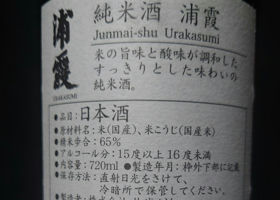 浦霞
URAKASUMI
純米酒 浦霞
Junmai-shu Urakasumi
米の旨味と酸味が調和した
すっきりとした味わいの
純米酒。
●品目:日本酒
●原材料名:米(国産)、米こうじ(国産米)
●精米歩合:65%
●アルコール分:15度以上16度未満
●内容量:720ml ●製造年月:枠外下部に記載
●保存方法:直射日光をさけて、
冷暗所で保管してください。